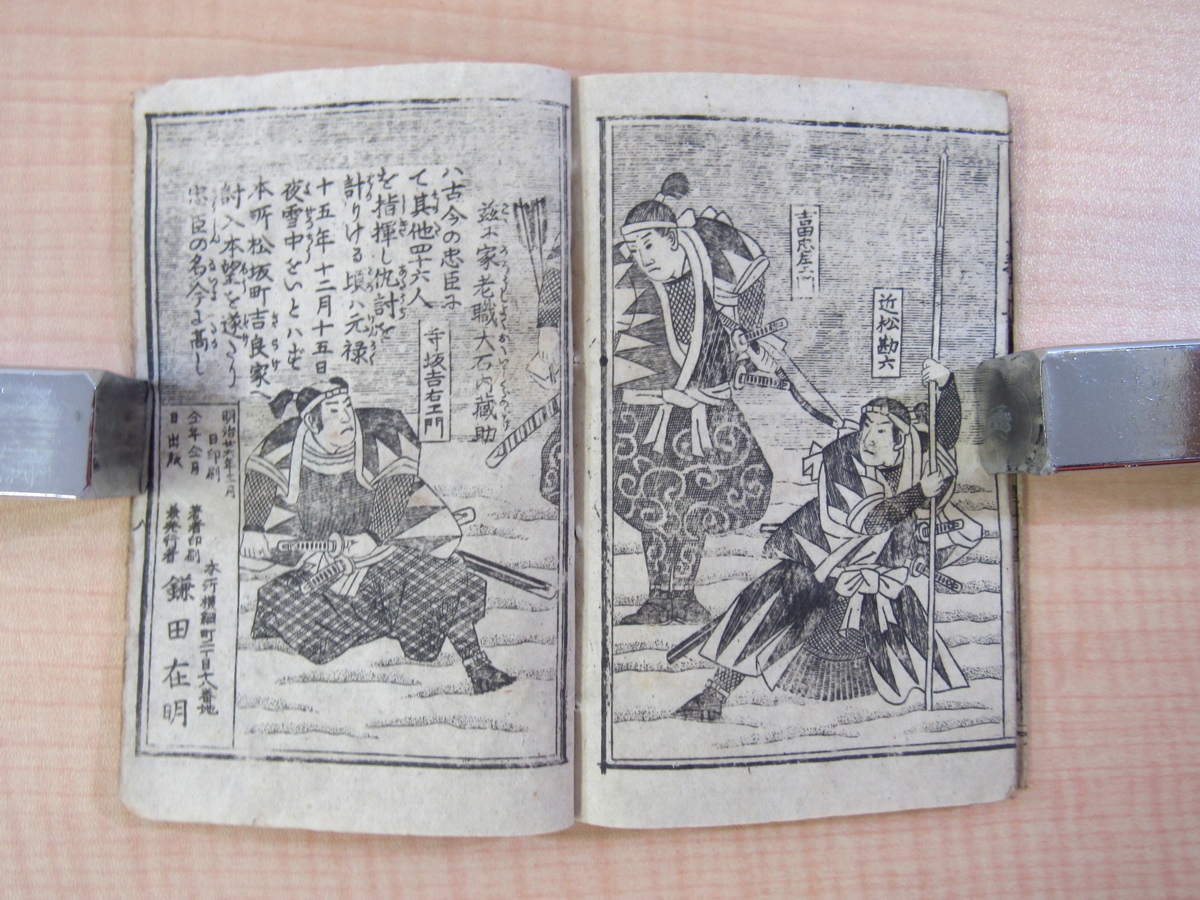 吉田忠左エ門
近松勘六
茲に家老職大石内藏助
ハ古今の忠臣に
て其他四十六人
を指揮し仇討を
計りける頃ハ元禄
十五年十二月十五日
夜雪中をいとハず
本所松坂町吉良家へ
討入本望を遂たり
忠臣の名今に高し
寺坂吉右エ門
明治廿六年十二月
日印刷
仝年仝月
日出版
本所横網町二丁目十八番地
著者印刷
兼発行者
鎌田在明